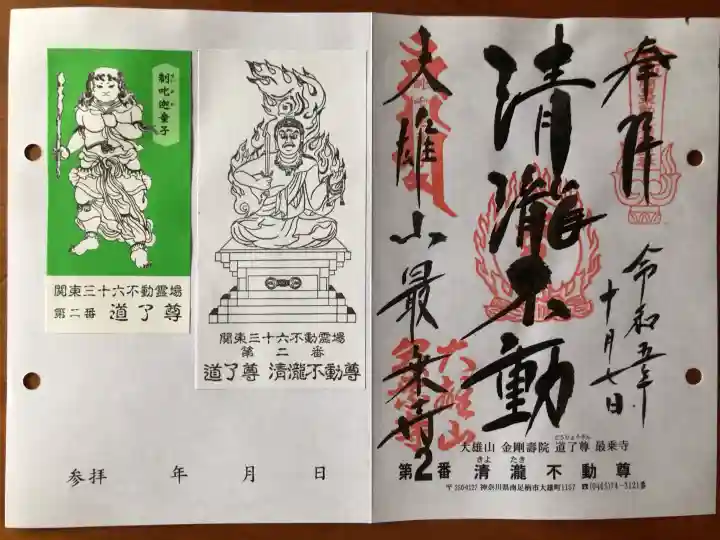 奉拝
清瀧不動
大雄山最乗寺
令和五年
十月七日
大雄山
大雄山 金剛壽院 道了尊 最乗寺
どうりょうそん
きよ たき
第2番 清瀧不動尊
〒250-0127 神奈川県南足柄市大雄町1157 ☎(0465)74-3121番
制吒迦童子
関東三十六不動霊場
第二番 道了尊
関東三十六不動霊場
第二番
道了尊 清瀧不動尊
参拝 年 月 日